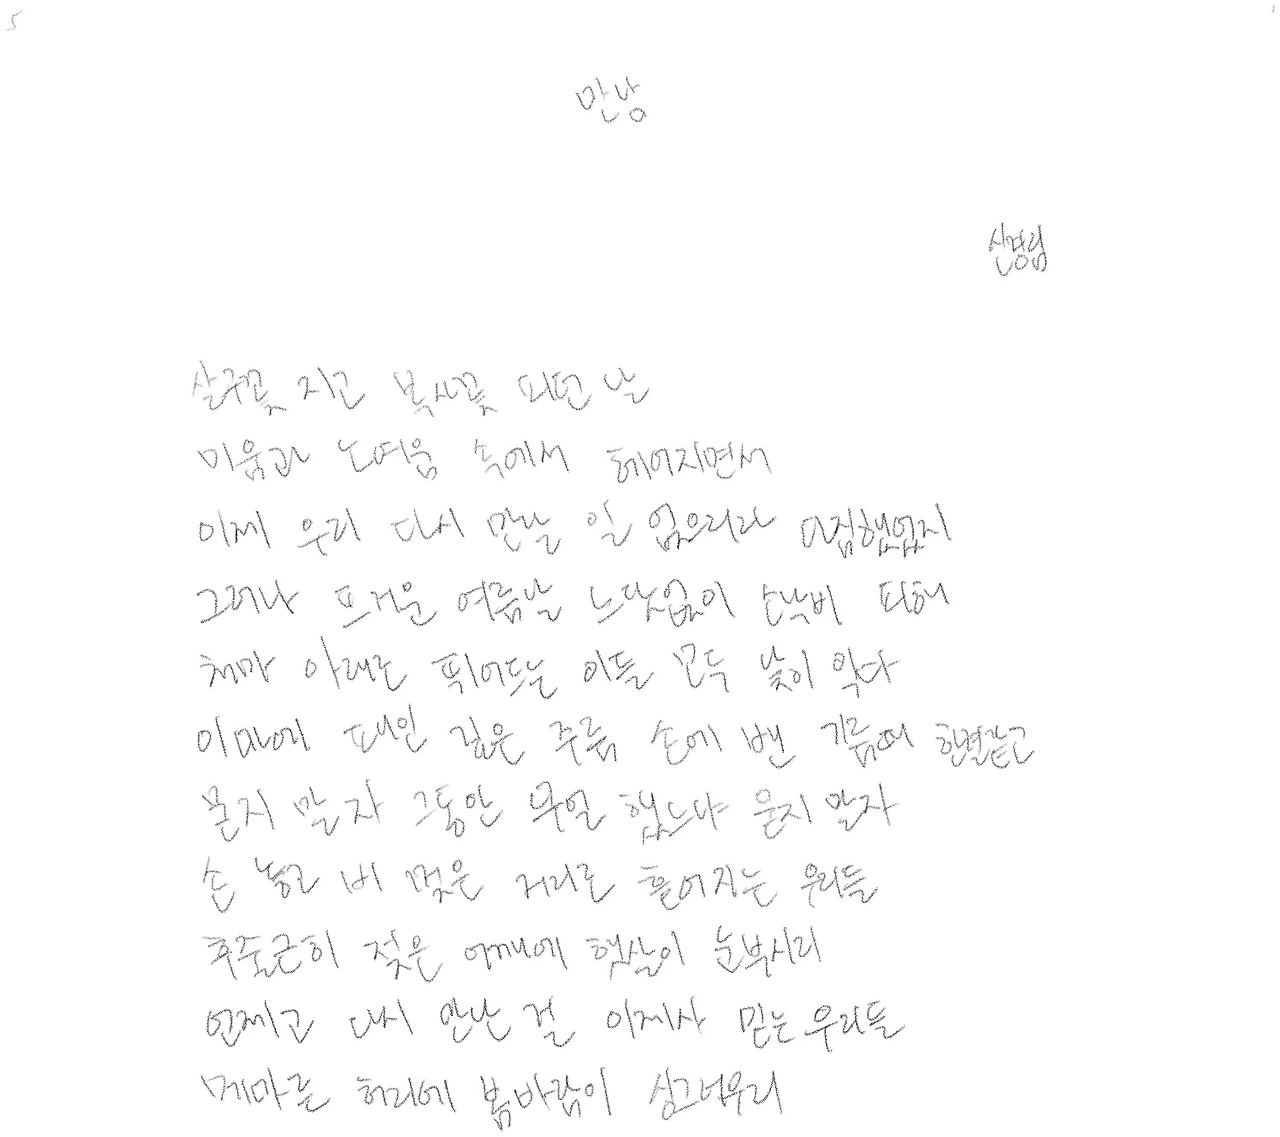 만남
신경림
살구꽃 지고 복사꽃 피던 날
미움과 노여움 속에서 헤어지면서
이제 우리 다시 만날 일 없으리라 다짐했었지
그러나 뜨거운 여름날 느닷없이 소낙비 피해
처마 아래로 뛰어드는 이들 모두 낯이 익다
이마에 패인 깊은 주름 손에 밴 기름때 한결같고
묻지 말자 그동안 무얼 했느냐 묻지 말자
손 놓고 비 멎은 거리로 흩어지는 우리들
후줄근히 젖은 어깨에 햇살이 눈부시리
언제고 다시 만난 걸 이제사 믿는 우리들
메마른 허리에 봄바람이 싱그러우리